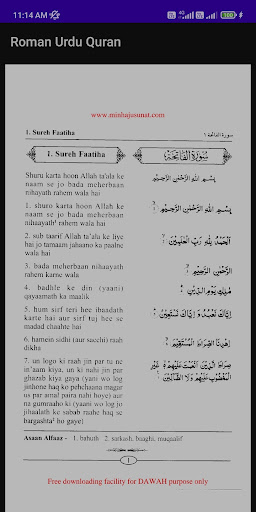 11:14 AM
Roman Urdu Quran
www.minhajusunat.com
1. Sureh Faatiha
سورة الفاتحة ١
1. Sureh Faatiha
سُوْرَةُ الْفَاتِحَةِ
Shuru karta hoon Allah ta'ala ke
naam se jo bada meherbaan
nihayath rahem wala hai
بِسْمِ اللهِ الرَّحْمٰنِ الرَّحِيْمِ
1. shuro karta hoon Allah ke
naam se jo bada meherbaan
nihaayath¹ rahem wala hai
بِسْمِ اللهِ الرَّحْمٰنِ الرَّحِيْمِ
2. sub taarif Allah ta'ala ke liye
hai jo tamaam jahaano ka paalne
wala hai
اَلْحَمْدُ لِلّٰهِ رَبِّ الْعٰلَمِيْنَ
3. bada meherbaan nihaayath
rahem karne wala
الرَّحْمٰنِ الرَّحِيْمِ
4. badhle ke din (yaani)
qayaamath ka maalik
مٰلِكِ يَوْمِ الدِّيْنِ
5. hum sirf teri hee ibaadath
karte hai aur sirf tuj hee se
madad chaahte hai
اِيَّاكَ نَعْبُدُ وَ اِيَّاكَ نَسْتَعِيْنُ
6. hamein sidhi (aur sacchi) raah
dikha
اِهْدِنَا الصِّرَاطَ الْمُسْتَقِيْمَ
7. un logo ki raah jin par tu ne
in'aam kiya, un ki nahi jin par
ghazab kiya gaya (yani wo log
jinhone haq ko pehchaana magar
us par amal paira nahi hoye) aur
na gumraaho ki (yaani wo log jo
jihaalath ke sabab raahe haq se
bargashta² ho gaye)
صِرَاطَ الَّذِيْنَ اَنْعَمْتَ عَلَيْهِمْ غَيْرِ
الْمَغْضُوْبِ عَلَيْهِمْ وَلَا الضَّآلِّيْنَ
Asaan Alfaaz - 1. bahuth 2. satkash, baaghi, muqaalif
1
Free downloading facility for DAWAH purpose only